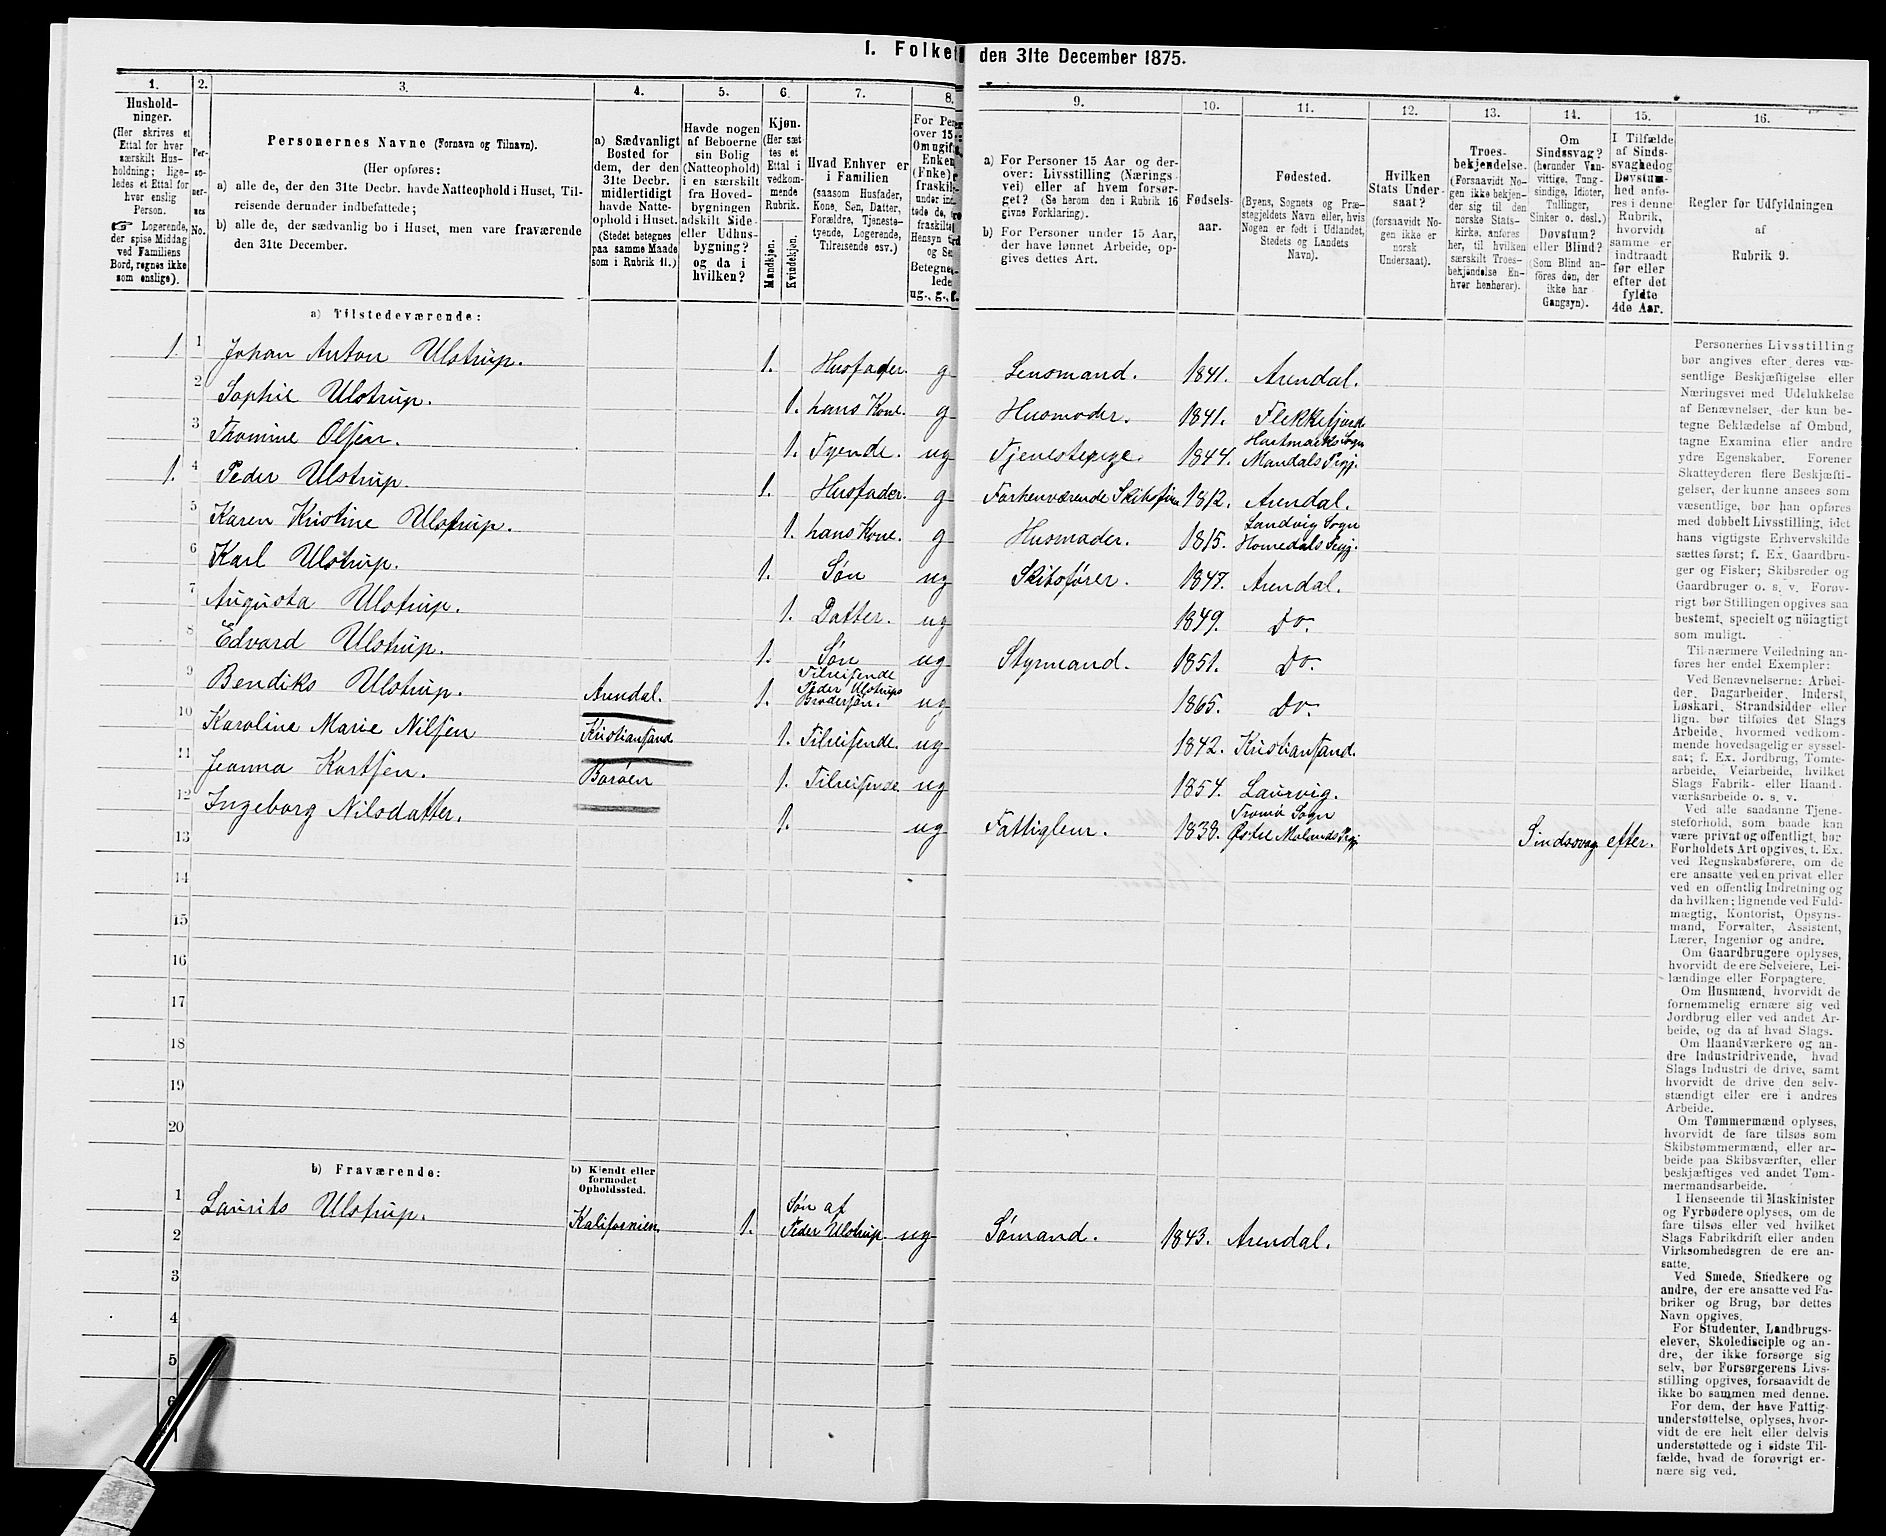 I. Folke den 31te December 1875.
1. 2. 3. 4. 5. 6. 7. 8. 9. 10. 11. 12. 13. 14. 15. 16.
Hushold-
ninger.
(Her skrives et
Ettal for hver
særskilt Hus-
holdning; lige-
ledes et Ettal for
hver enslig
Person.
☞ Logerende,
der spise Middag
ved Familiens
Bord, regnes ikke
som enslige).
Per-
so-
ner-
nes
No.
Personernes Navne (Fornavn og Tilnavn).
(Her opføres:
a) alle de, der den 31te Decbr. havde Natteophold i Huset, Til-
reisende derunder indbefattede;
b) alle de, der sædvanlig bo i Huset, men vare fraværende
den 31te December.
a) Sædvanligt
Bosted for
dem, der den
31te Decbr.
midlertidigt
havde Natte-
ophold i Huset.
(Stedet betegnes
paa samme Maade
som i Rubrik 11.)
Havde nogen
af Beboerne
sin Bolig
(Natteophold)
i en særskilt
fra Hoved-
bygningen
adskilt Side-
eller Udhus-
bygning?
og da i
hvilken?
Kjøn.
(Her sæt-
tes et
Ettal i
vedkom-
mende
Rubrik.
Mandkjøn.
Kvindekjøn.
Hvad Enhver er
i Familien
(saasom Husfader,
Kone, Søn, Datter,
Forældre, Tjeneste-
tyende, Logerende,
Tilreisende osv.)
For Per
over 15
Om ugift
Enken
(Fnke)
fraskil
under ind
tede de,
fraskilt
Hensyn
og Se
Betegne
lede
ug., g.,
a) For Personer 15 Aar og der-
over: Livsstilling (Nærings
vei) eller af hvem forsør-
get? (Se herom den i Rubrik 16
givne Forklaring).
b) For Personer under 15 Aar,
der have lønnet Arbeide, op-
gives dettes Art.
Fødsels-
aar.
Fødested.
(Byens, Sognets og Præ-
stegjeldets Navn eller, hvis
Nogen er født i Udlandet,
Stedets og Landets
Navn).
Hvilken
Stats Under-
saat?
(forsaavidt No-
gen ikke er
norsk
Undersaat).
Troes-
bekjendelse.
(Forsaavidt No-
gen ikke bekjen-
der sig til den
norske Stats-
kirke, anføres
her, til hvilken
særskilt Troes-
bekjendelse En-
hver henhører).
Om
Sindssvag?
(herunder Van-
vittige, Tung-
sindige, Idioter,
Tullinger,
Sinker o. desl.)
Døvstum?
eller Blind?
(Som Blind an-
føres den, der
ikke har
Gangsyn).
I Tilfælde
af Sinds-
svaghedog
Døvstum-
hed anfø-
res i denne
Rubrik,
hvorvidt
samme er
indtraadt
før eller
efter det
fyldte
4de Aar.
Regler for Udfyldningen
af
Rubrik 9.
a) Tilstedeværende:
1. 1 Johan Anton Ulstrup. 1. Husfader. g Lensmand. 1841. Arendal.
2 Sophie Ulstrup. 1. hans Kone. g Husmoder. 1841. Flekkefjord
3 Thomine Olsen. 1. Tyende. ug Tjenestepige. 1844. Hartmarks Sogn
Mandals Prgj.
1. 4 Peder Ulstrup. 1. Husfader. g Forhenværende Skibsfører 1812. Arendal.
5 Karen Kristine Ulstrup. 1. hans Kone. g Husmoder. 1815. Landvig Sogn
Homedals Prgj.
6 Karl Ulstrup. 1. Søn ug Skibsfører. 1847. Arendal.
7 Augusta Ulstrup. 1. Datter. ug 1849. Do.
8 Edvard Ulstrup. 1. Søn ug Styrmand. 1851. Do.
9 Bendiks Ulstrup. Arendal. 1. Tilreisende
Peder Ulstrups
Brodersøn. ug 1865. Do.
10 Karoline Marie Nilsen Kristiansand 1. Tilreisende. ug 1842. Kristiansand.
11 Jeanna Kortsen. Borøen 1. Tilreisende ug 1854. Laurvig.
12 Ingeborg Nilsdatter. 1. ug Fattiglem. 1838. Tromø Sogn
Østre Molands Prgj. Sindssvag efter.
13
14
15
16
17
18
19
20
b) Fraværende:
b) Kjendt eller
formodet
Opholdssted.
1 Laurits Ulstrup. Kalifornien 1. Søn af
Peder Ulstrup. ug Sømand. 1843. Arendal.
2
3
4
5
6
Personernes Livsstilling
bør angives efter deres væ-
sentlige Beskjæftigelse eller
Næringsvei med Udelukkelse
af Benævnelser, der kun be-
tegne Beklædelse af Ombud,
tagne Examina eller andre
ydre Egenskaber. Forener
Skatteyderen flere Beskjæfti-
gelser, der kunne ansees som
væsentlige, bør han opføres
med dobbelt Livsstilling, idet
hans vigtigste Erhvervskilde
sættes først; f. Ex. Gaardbru-
ger og Fisker; Skibsreder og
Gaardbruger o. s. v. Forøv-
rigt bør Stillingen opgives saa
bestemt, specielt og nøiagtigt
som muligt.
Til nærmere Veiledning an-
føres her endel Exempler:
Ved Benævnelserne: Arbei-
der, Dagarbeider, Inderst,
Løskarl, Strandsidder eller
lign. bør tilføies det Slags
Arbeide, hvormed vedkom-
mende hovedsagelig er syssel-
sat; f. Ex. Jordbrug, Tomte-
arbeide, Veiarbeide, hvilket
Slags Fabrik- eller Haand-
værksarbeide o. s. v.
Ved alle saadanne Tjene-
steforhold, som baade kan
være privat og offentligt, bør
Forholdets Art opgives, t. Ex.
ved Regnskabsførere, om de
ere ansatte ved en privat eller
ved en offentlig Indretning og
da hvilken; lignende ved Fuld-
mægtig, Kontorist, Opsyns-
mand, Forvalter, Assistent,
Lærer, Ingeniør og andre.
Om Gaardbrugere oplyses,
hvorvidt de ere Selveiere, Lei-
lændinge eller Forpagtere.
Om Husmænd, hvorvidt de
fornemmelig ernære sig ved
Jordbrug eller ved andet Ar-
beide, og da af hvad Slags.
Om Haandværkere og an-
dre Industridrivende, hvad
Slags Industri de drive, samt
hvorvidt de drive den selv-
stændigt eller ere i andres
Arbeide.
Om Tømmermænd oplyses,
hvorvidt de fare tilsøs som
Skibstømmermænd, eller ar-
beide paa Skibsværfter, eller
beskjæftiges ved andet Tøm-
mermandsarbeide.
I Henseende til Maskinister
og Fyrbødere oplyses, om de
fare tilsøs eller ved hvilket
Slags Fabrikdrift eller anden
Virksomhedsgren de ere an-
satte.
Ved Smede, Snedkere og
andre, der ere ansatte ved Fa-
briker og Brug, bør dettes
Navn opgives.
For Studenter, Landbrugs-
elever, Skoledisciple og an-
dre, der ikke forsørge sig
selv, bør Forsørgerens Livs-
stilling opgives, forsaavidt de
ikke bo sammen med denne.
For dem, der have Fattig-
understøttelse, oplyses, hvor-
vidt de ere helt eller delvis
understøttede og i sidste Til-
fælde, hvad de forøvrigt er-
nære sig ved.